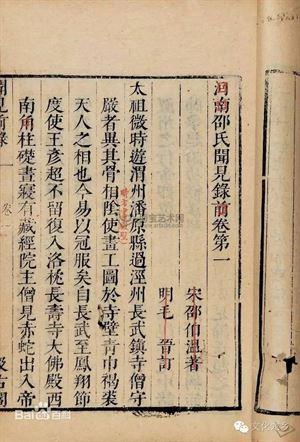 河南邵氏聞見錄前卷第一
宋邵伯溫著
明毛 晉訂
太祖微時遊渭州潘原縣過涇州長武鎮寺僧守
嚴者異其骨相陰使畫工圖於寺壁青巾褐裘
天人之相也今易以冠服矣自長武至鳳翔節
度使王彥超不留復入洛枕長壽寺大佛殿西
南角柱礎晝寢有藏經院主僧見赤蛇出入帝
聞見前錄
卷一
汲古閣
Bai百科
文化遊步